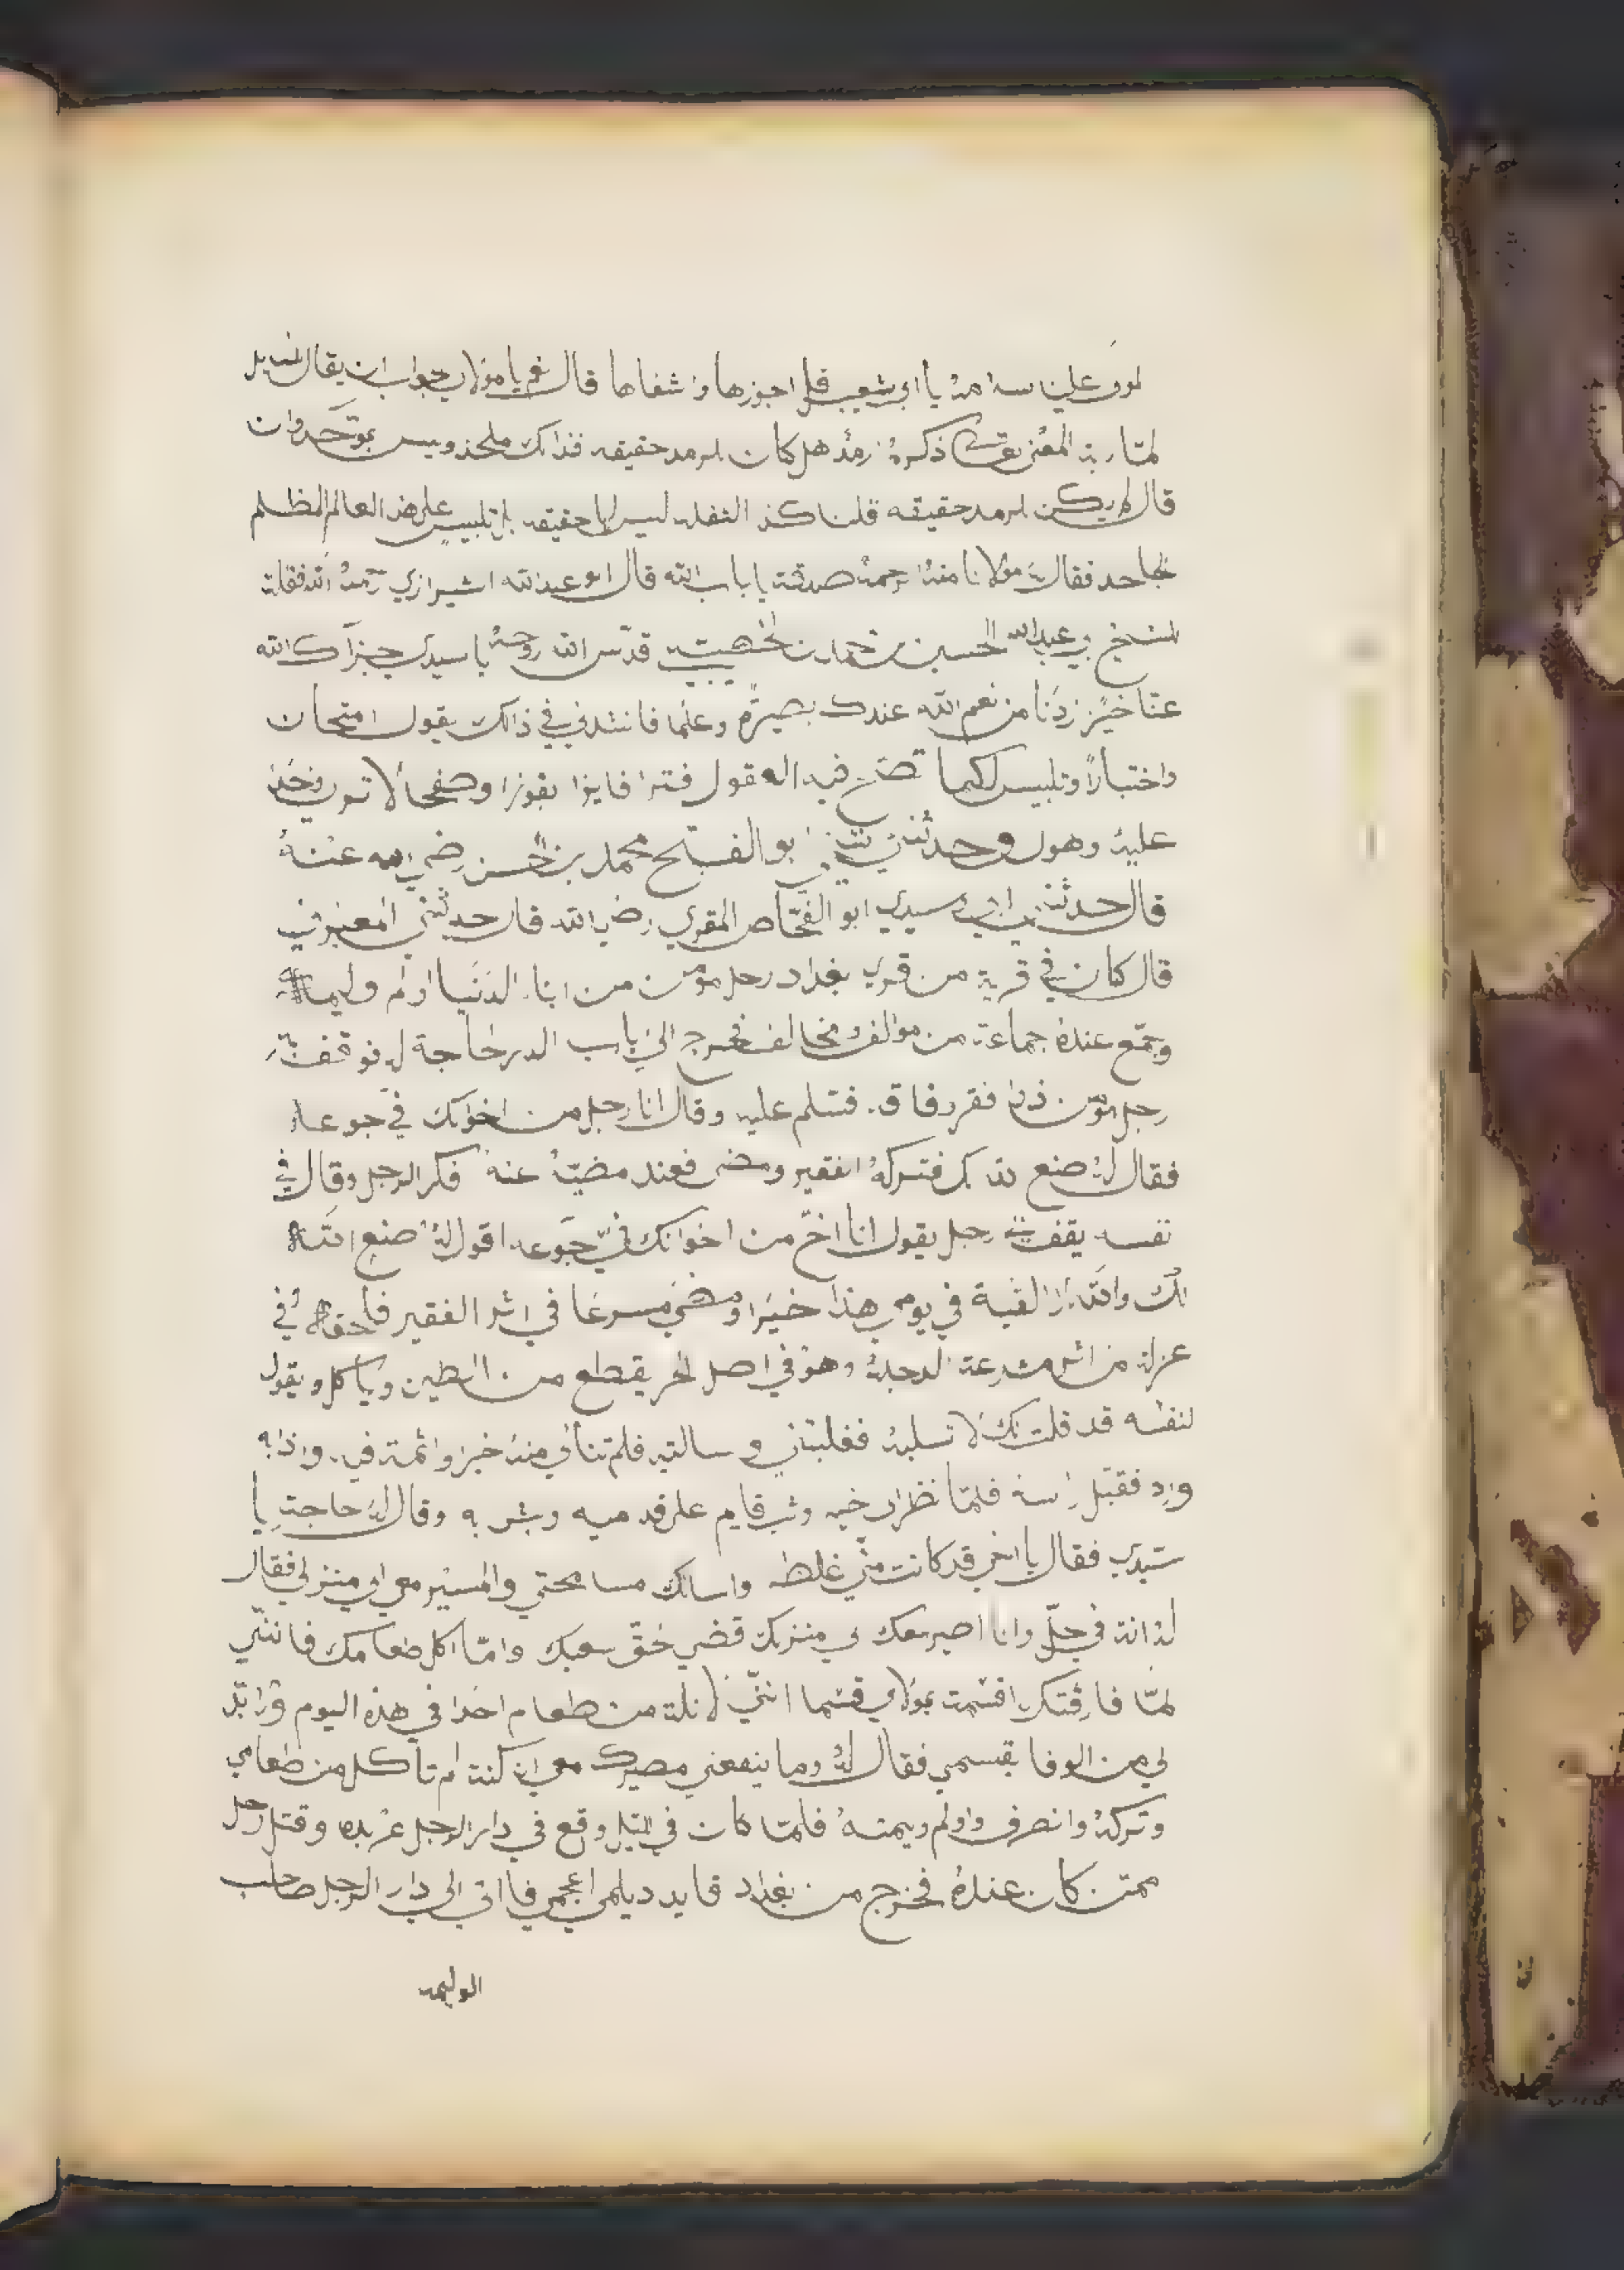 علينا سلامه يا ابي شعيب قل اجوزها واشفاها قال نعم يا مولاي جواب ان يقال
ذكره زمد هل كان لرمد حقيقه فذاك ملحد وليس بموحد وان
قال لم يكن لرمد حقيقه قلنا كذ النقله ليس لها حقيقه بل تلبيس على هذ العالم المظلم
الجاحد فقال مولانا منه الرحمه صدقت يا باب الله قال ابو عبدالله الشيرازي رحمه الله فقلت
للشيخ ابي عبدالله الحسين بن حمدان الخصيبي قدس الله روحه يا سيدي جزاك الله
عنا خيرا زدنا من نعم الله عندك بصيرة وعلما فانشدني في ذالك يقول امتحان
واختبارا وتلبيس لكيما تصح فيه اله قول فترا فايزا بفوز وصفحا لا ترى
عليه وهول وحدثني الشيخ ابو الفتح محمد بن الحسن رضي الله عنه
قال حدثني ابي وسيدي ابو الفتحاص المقري رضي الله قال حدثني
قال كان في قرية من قري بغداد رجل مومن من ابناء الدنيا اولم وليمة
وجمع عنده جماعة من موالف ومخالف فخرج الى باب الدر لحاجة له فوقف به
رجل مومن ذا فقر وفاقه فسلم عليه وقال انا رجل من اخوانك في جوعه
فقال له صنع الله لك فتركه الفقير ومضى فعند مضيه عنه فكر الرجل وقال في
نفسه يقف بي رجل يقول انا اخ من اخوانك في جوعه اقول له صنع الله
لك والله لا لقية في يومي هذا خيرا ومضى مسرعا في اثر الفقير فلحقه في
عزلة من مشرعة الدجلة وهو في اصل يقطع من الطين وياكل ويقول
لنفسه قد قلت لك لا تسليه فغلبتني وسالتيه فلم تنالي منه خيرا واذا به
ورد فقبل راسه فلما نظر اخيه وثب قايم على قدميه وبشر به وقال له حاجت يا
سيدي فقال يا اخي قد كانت مني غلطه واسالك مسامحتي والمسير معي الى منزلي فقال
له انت في حل وانا اصير معك الى منزلك قضي حق سعيك واما اكل طعامك فانني
لما فارقتك اقسمت بمولاي قسما انني لا نلت من طعام احدا في هذه اليوم ولا بد
لي من الوفا بقسمي فقال له وما ينفعني مصيرك معي ان كنت لم تاكل من طعامي
وتركه وانصرف واولم وليمته فلما كان في الليل وقع في دار الرجل عربده وقتل رجل
ممن كان عنده فخرج من بغداد قايد ديلمي اعجمي فااتى الى دار الرجل صاحب
الوليمه